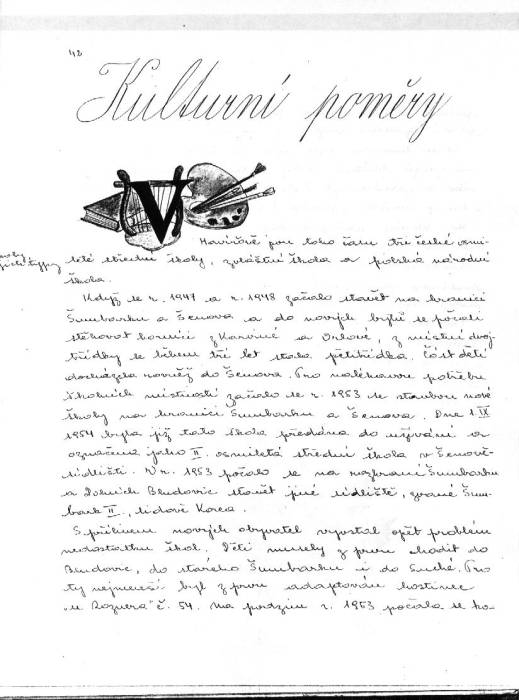 42
Kulturní poměry
V Havířově jsou toho času tři české osmi-
leté střední školy, zvláštní škola a polská národní
škola.
Když se r. 1947 a r. 1948 začalo stavět na hranici
Šumbarku a Šenova a do nových bytů se počali
stěhovat horníci z Karviné a Orlové, z místní dvoj-
třídky se během tří let stala pětitřídka. Část dětí
docházela rovněž do Šenova. Pro naléhavou potřebu
školních místností začalo se r. 1953 se stavbou nové
školy na hranici Šumbarku a Šenova. Dne 1. IX
1954 byla již tato škola předána do užívání a
označena jako II. osmiletá střední škola v Šenově-
sídlišti. V r. 1953 počalo se na rozhraní Šumbarku
a Dolních Bludovic stavět jiné sídliště, zvané Šum-
bark II., lidově Korea.
S přílivem nových obyvatel vyvstal opět problém
nedostatku škol. Děti musely z prvu chodit do
Bludovic, do starého Šumbarku i do Suché. Pro
ty nejmenší byl z prvu adaptován hostinec
"u Rozuera" č. 54. Na podzim r. 1953 počala se ko-